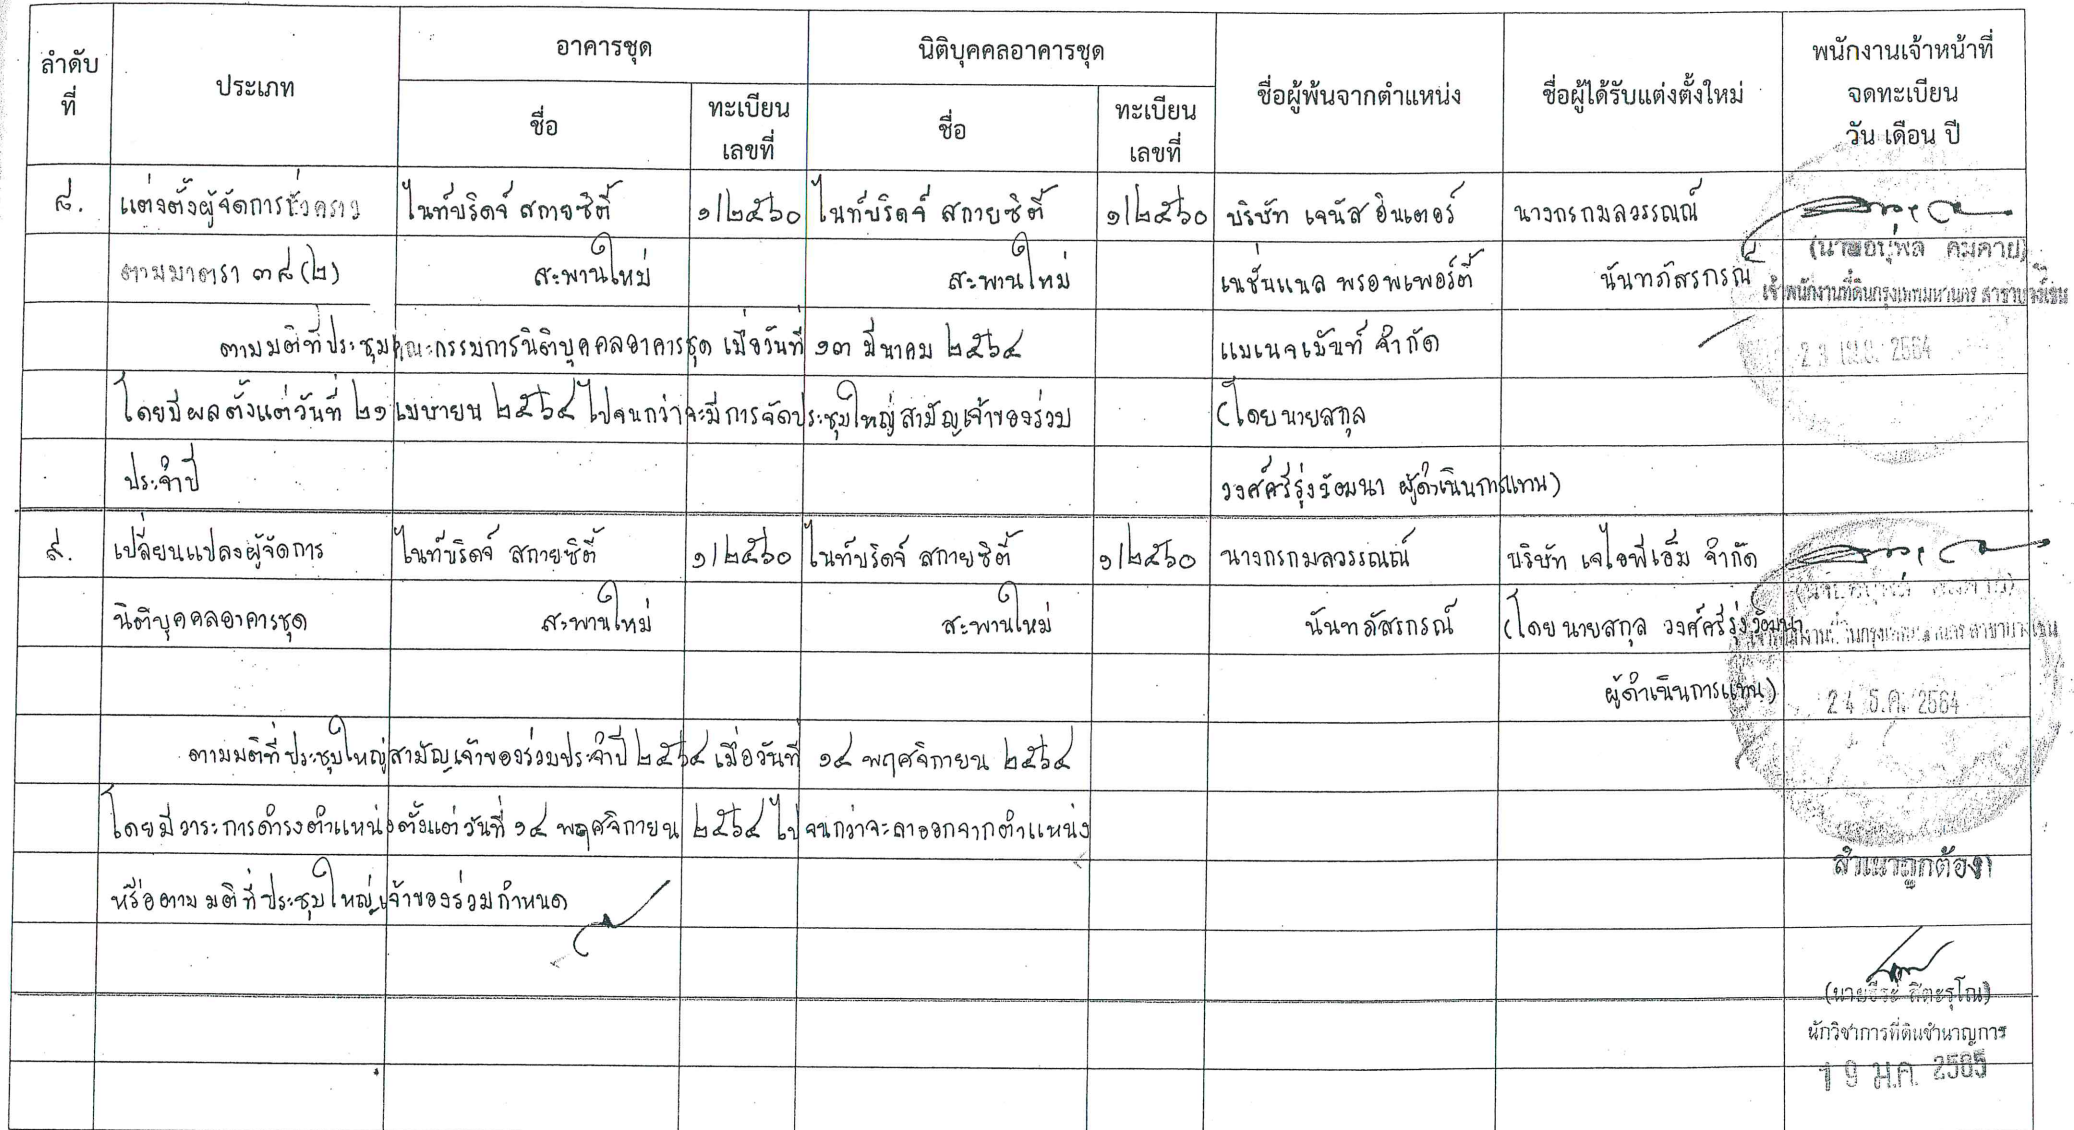 ลำดับที่ ประเภท อาคารชุด นิติบุคคลอาคารชุด ชื่อผู้พ้นจากตำแหน่ง ชื่อผู้ได้รับแต่งตั้งใหม่ พนักงานเจ้าหน้าที่ จดทะเบียน วัน เดือน ปี
ชื่อ ทะเบียนเลขที่ ชื่อ ทะเบียนเลขที่
๘. แต่งตั้งผู้จัดการชั่วคราว ไนท์บริดจ์ สกายซิตี้ ๑/๒๕๖๐ ไนท์บริดจ์ สกายซิตี้ ๑/๒๕๖๐ บริษัท เจนัส อินเตอร์ นางกรกมลวรรณณ์
ตามมาตรา ๓๘(๒) สะพานใหม่ สะพานใหม่ เนชั่นแนล พรอพเพอร์ตี้ นันทภัสรกรณ์ (นายอนุพล คมคาย)
เจ้าพนักงานที่ดินกรุงเทพมหานคร สาขาบางเขน
ตามมติที่ประชุมคณะกรรมการนิติบุคคลอาคารชุด เมื่อวันที่ ๑๓ มีนาคม ๒๕๖๔ แมเนจเม้นท์ จำกัด 2564
โดยมีผลตั้งแต่วันที่ ๒๑ เมษายน ๒๕๖๔ ไปจนกว่าจะมีการจัดประชุมใหญ่สามัญเจ้าของร่วม (โดย นายสกุล
ประจำปี วงศ์ศรีรุ่งวัฒนา ผู้ดำเนินการแทน)
๙. เปลี่ยนแปลงผู้จัดการ ไนท์บริดจ์ สกายซิตี้ ๑/๒๕๖๐ ไนท์บริดจ์ สกายซิตี้ ๑/๒๕๖๐ นางกรกมลวรรณณ์ บริษัท เจไอพีเอ็ม จำกัด
นิติบุคคลอาคารชุด สะพานใหม่ สะพานใหม่ นันทภัสรกรณ์ (โดย นายสกุล วงศ์ศรีรุ่งวัฒนา
ผู้ดำเนินการแทน) 24 ธ.ค. 2564
ตามมติที่ประชุมใหญ่สามัญเจ้าของร่วมประจำปี ๒๕๖๔ เมื่อวันที่ ๑๔ พฤศจิกายน ๒๕๖๔
โดยมีวาระการดำรงตำแหน่งตั้งแต่วันที่ ๑๔ พฤศจิกายน ๒๕๖๔ ไปจนกว่าจะลาออกจากตำแหน่ง
สำเนาถูกต้อง
หรือตามมติที่ประชุมใหญ่เจ้าของร่วมกำหนด
นักวิชาการที่ดินชำนาญการ
19 ม.ค. 2565